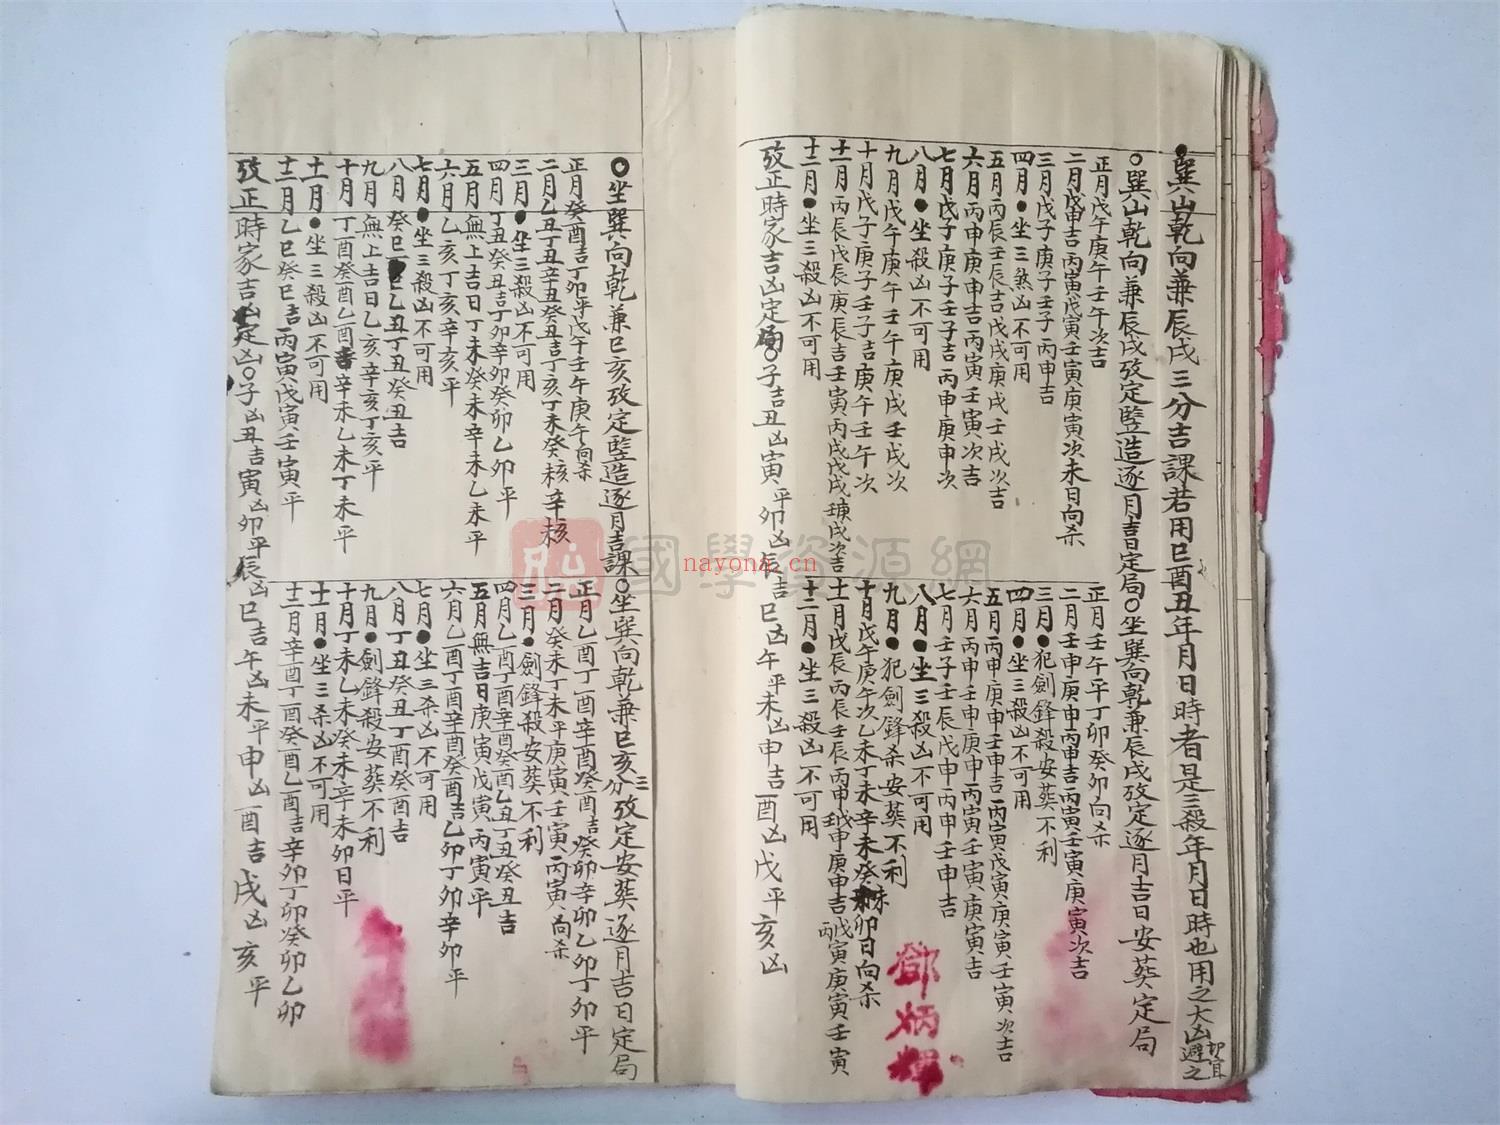 ●巽山乾向兼辰戌三分吉課若用巳酉丑年月日時者是三殺年月日時也用之大凶避之
○巽山乾向兼辰戌攷定豎造逐月吉日定局○坐巽向乾兼辰戌攷定逐月吉日安葬定局
正月戊午庚午壬午次吉
二月戊申吉丙寅戊寅壬寅庚寅次未日向杀
三月戊子庚子壬子丙申吉
四月●坐三煞凶不可用
五月丙辰壬辰吉戊戌庚戌壬戌次吉
六月丙申庚申吉丙寅壬寅次吉
七月戊子庚子壬子吉丙申庚申次
八月●坐殺凶不可用
九月戊午庚午壬午庚戌壬戌次
十月戊子庚子壬子吉庚午壬午次
十一月丙辰戊辰庚辰吉壬寅丙戌戊戌庚戌次吉
十二月●坐三殺凶不可用
正月壬午平丁卯癸卯向杀
二月壬申庚申丙申吉丙寅壬寅庚寅次吉
三月●犯劍鋒殺安葬不利
四月●坐三殺凶不可用
五月丙申庚申壬申吉丙寅戊寅庚寅壬寅次吉
六月丙申壬申庚申丙寅壬寅庚寅吉
七月壬子壬辰戊申丙申壬申吉
八月●坐三殺凶不可用
九月●犯劍鋒杀安葬不利
十月戊午庚午次乙未丁未辛未癸未卯日向杀
十一月戊辰丙辰壬辰丙申戊申庚申吉丙戊寅庚寅壬寅
十二月●坐三殺凶不可用
攷正時家吉凶定局○子吉丑凶寅平卯凶辰吉巳凶午平未凶申吉酉凶戌平亥凶
鄧炳輝
○坐巽向乾兼巳亥攷定豎造逐月吉課○坐巽向乾兼巳亥三分攷定安葬逐月吉日定局
正月癸酉吉丁卯平戊午壬午庚午向杀
二月乙丑丁丑辛丑癸丑吉丁亥丁未癸核辛核
三月●坐三殺凶不可用
四月丁丑癸丑吉丁卯辛卯癸卯乙卯平
五月無上吉日丁未癸未辛未乙未平
六月乙亥丁亥辛亥平
七月●坐三殺凶不可用
八月癸巳乙丑丁丑癸丑吉
九月無上吉日乙亥辛亥丁亥平
十月丁酉癸酉乙酉吉辛未乙未丁未平
十一月●坐三殺凶不可用
十二月乙巳癸巳吉丙寅戊寅壬寅平
正月乙酉丁酉辛酉癸酉吉癸卯辛卯乙卯丁卯平
二月癸未丁未平庚寅壬寅丙寅向杀
三月●劍鋒殺安葬不利
四月乙酉丁酉辛酉癸酉乙丑丁丑癸丑吉
五月無吉日庚寅戊寅丙寅平
六月乙酉丁酉辛酉癸酉吉乙卯丁卯辛卯平
七月●坐三杀凶不可用
八月丁丑癸丑丁酉癸酉吉
九月●劍鋒殺安葬不利
十月丁未乙未癸未辛未卯日平
十一月●坐三杀凶不可用
十二月辛酉丁酉癸酉乙酉吉辛卯丁卯癸卯乙卯
攷正時家吉凶定凶○子凶丑吉寅凶卯平辰凶巳吉午凶未平申凶酉吉戌凶亥平
國學資源網
nayona.cn